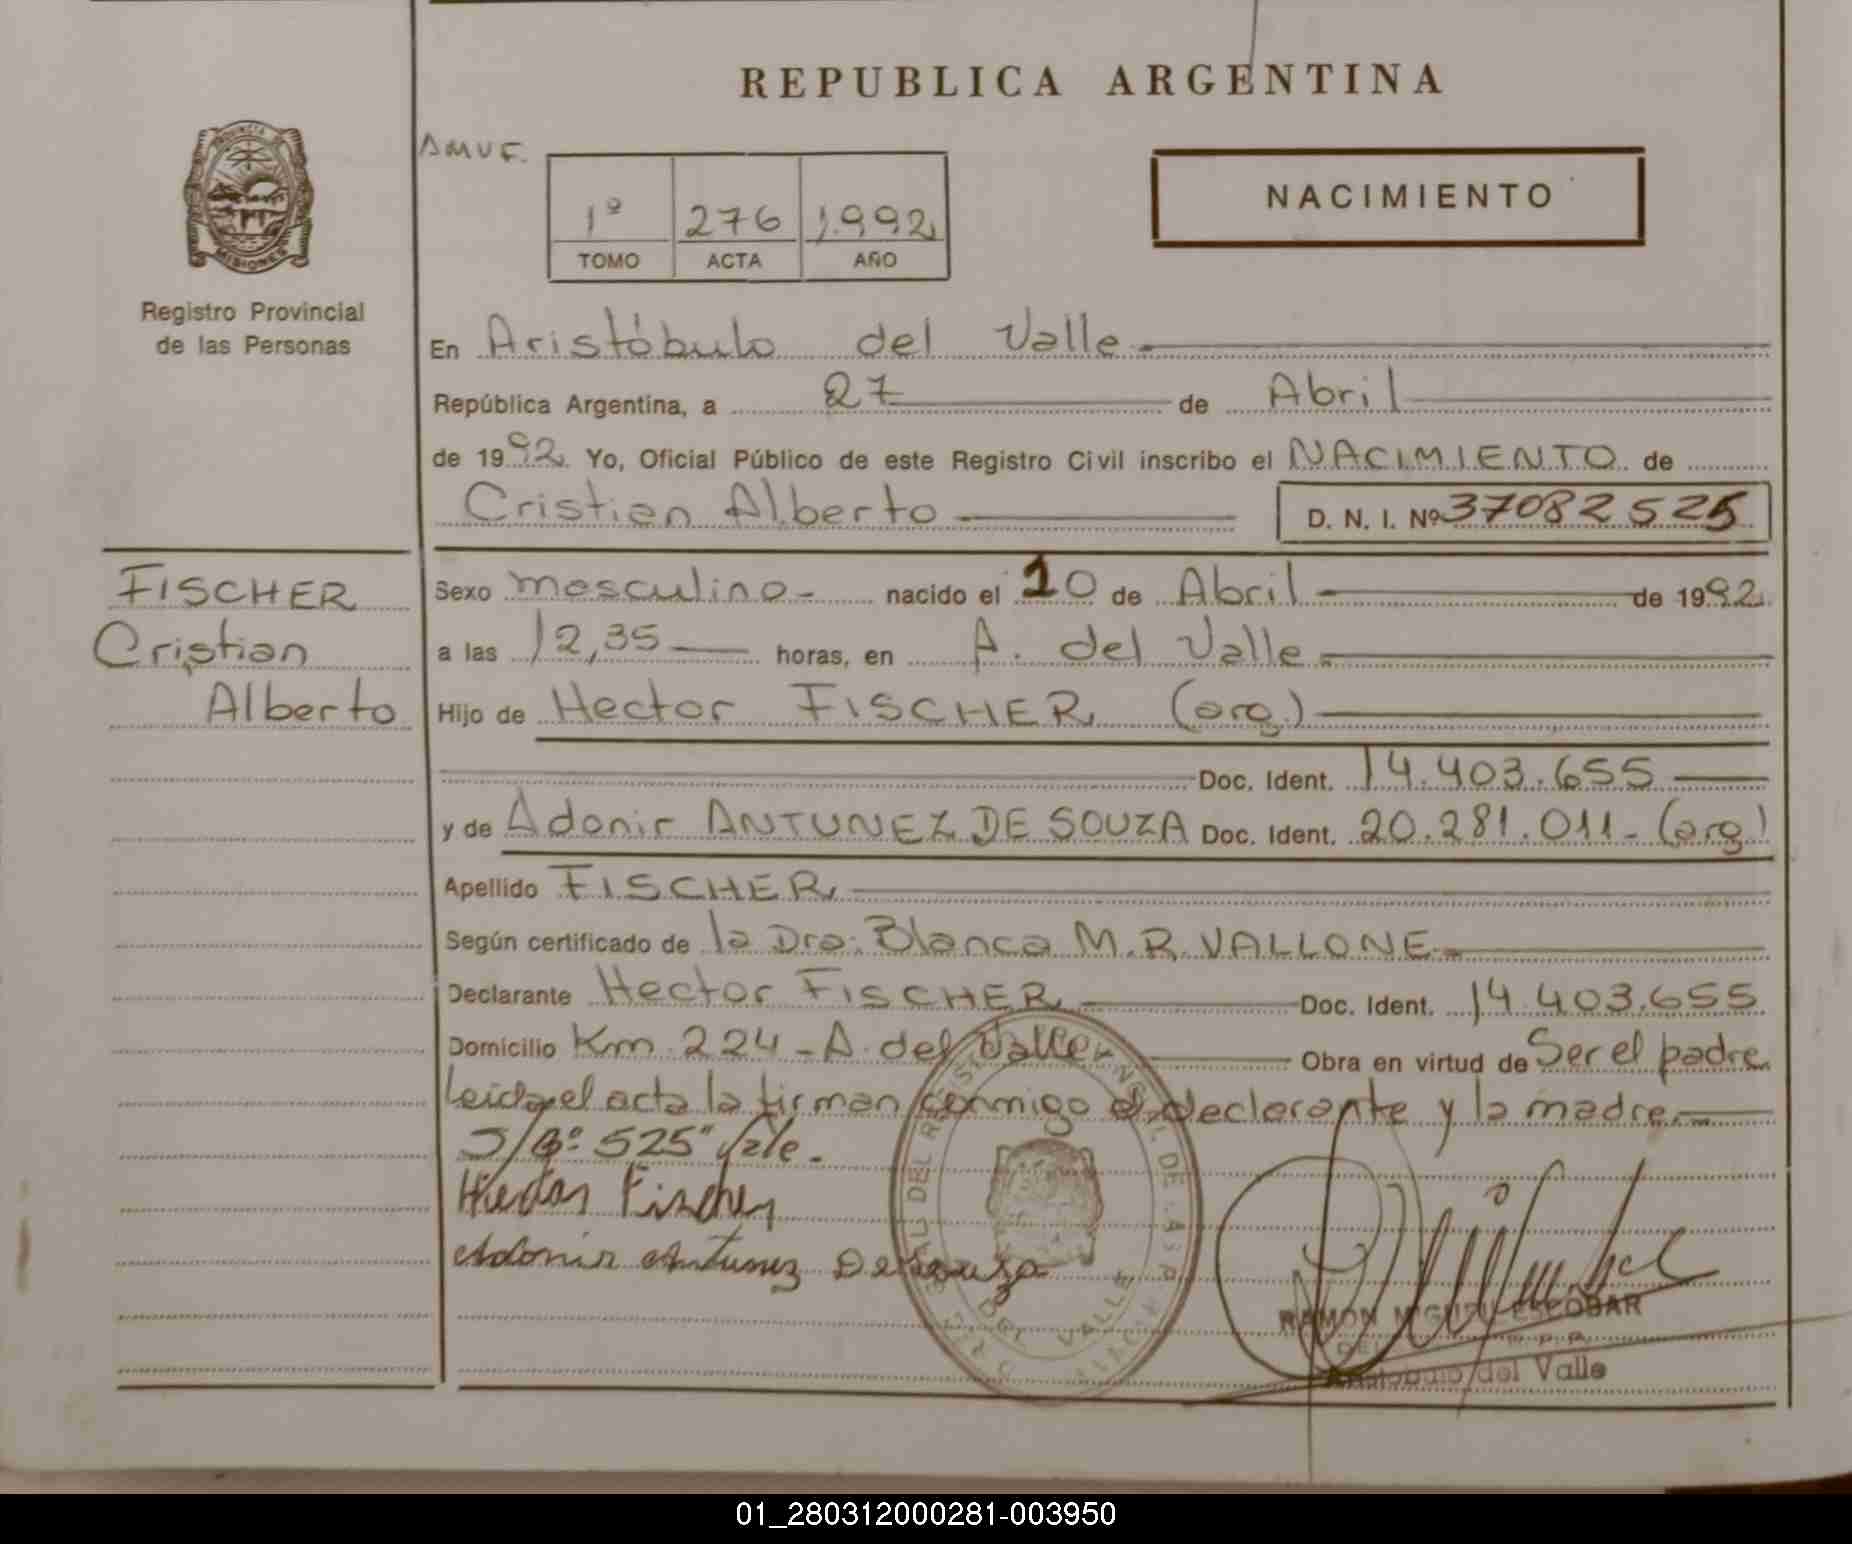 REPUBLICA ARGENTINA
PROVINCIA DE MISIONES
Registro Provincial
de las Personas
AMVF.
1º 276 1.992
TOMO ACTA AÑO
NACIMIENTO
En Aristóbulo del Valle
República Argentina, a 27 de Abril
de 1992 Yo, Oficial Público de este Registro Civil inscribo el NACIMIENTO de
Cristian Alberto D. N. I. Nº 37082525
FISCHER
Cristian
Alberto
Sexo masculino- nacido el 10 de Abril de 1992
a las 12,35 horas, en A. del Valle
Hijo de Hector FISCHER (arg.)
Doc. Ident. 14.403.655
y de Adonir ANTUNEZ DE SOUZA Doc. Ident. 20.281.011- (arg)
Apellido FISCHER
Según certificado de la Dra. Blanca M.R. VALLONE
Declarante Hector FISCHER Doc. Ident. 14.403.655
Domicilio Km 224-A. del Valle Obra en virtud de Ser el padre
Leida el acta la firman conmigo el declarante y la madre.-
S/Bº: 525" Vale.-
Hector Fischer
Adonir Antunez De Souza
DEL VALLE
RAMON MIGUEL ESCOBAR
Aristobulo del Valle
01_280312000281-003950